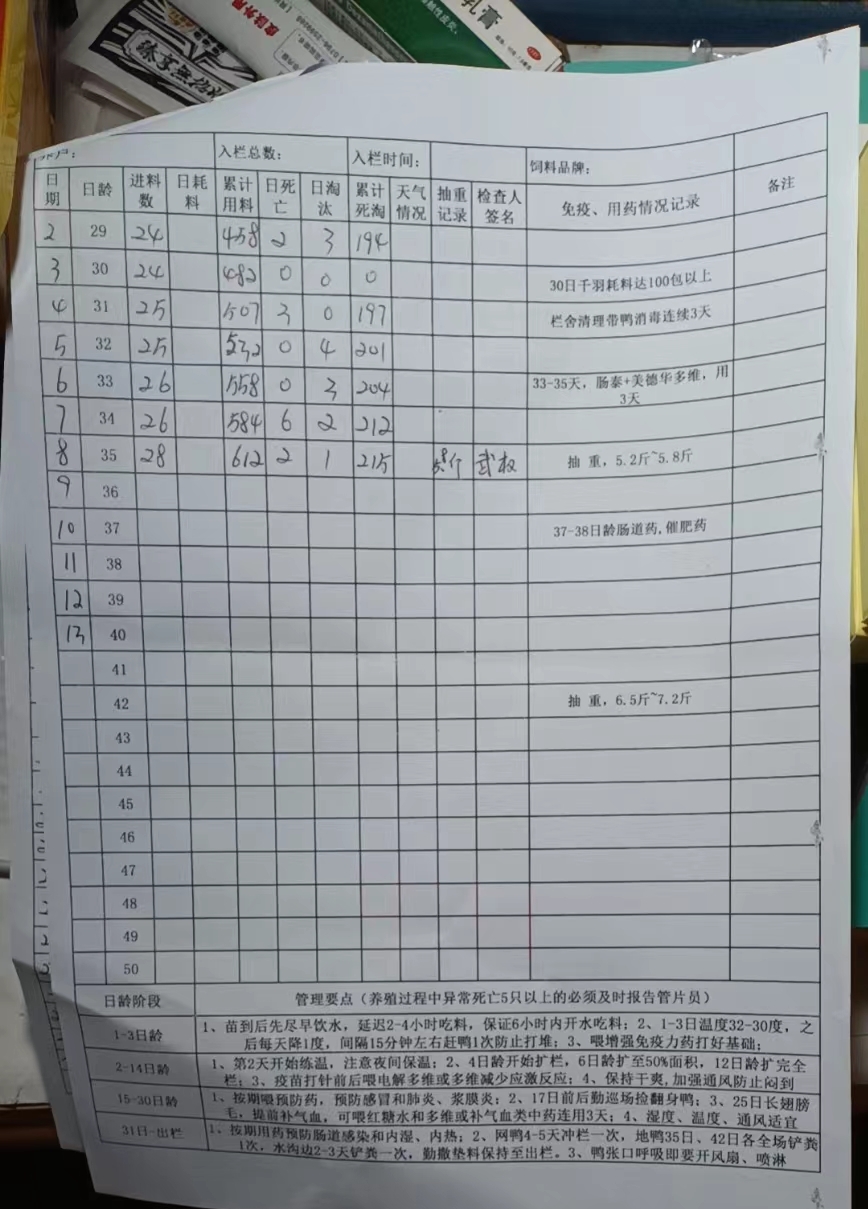 乳膏
皮肤外用
户：
入栏总数：
入栏时间：
饲料品牌：
日期 日龄 进料数 日耗料 累计用料 日死亡 日淘汰 累计死淘 天气情况 抽重记录 检查人签名 免疫、用药情况记录 备注
2 29 24 458 2 3 194
3 30 24 482 0 0 0 30日千羽耗料达100包以上
4 31 25 507 3 0 197 栏舍清理带鸭消毒连续3天
5 32 25 532 0 4 201
6 33 26 558 0 3 204 33-35天，肠泰+美德华多维，用3天
7 34 26 584 6 2 212
8 35 28 612 2 1 215 武权 抽 重，5.2斤~5.8斤
9 36
10 37 37-38日龄肠道药,催肥药
11 38
12 39
13 40
41
42 抽 重，6.5斤~7.2斤
43
44
45
46
47
48
49
50
日龄阶段 管理要点（养殖过程中异常死亡5只以上的必须及时报告管片员）
1-3日龄 1、苗到后先尽早饮水，延迟2-4小时吃料，保证6小时内开水吃料；2、1-3日温度32-30度，之
后每天降1度，间隔15分钟左右赶鸭1次防止打堆；3、喂增强免疫力药打好基础；
2-14日龄 1、第2天开始练温，注意夜间保温；2、4日龄开始扩栏，6日龄扩至50%面积，12日龄扩完全
栏；3、疫苗打针前后喂电解多维或多维减少应激反应；4、保持干爽,加强通风防止闷到
15-30日龄 1、按期喂预防药，预防感冒和肺炎、浆膜炎；2、17日前后勤巡场捡翻身鸭；3、25日长翅膀
毛，提前补气血，可喂红糖水和多维或补气血类中药连用3天；4、湿度、温度、通风适宜
31日-出栏 1、按期用药预防肠道感染和内湿、内热；2、网鸭4-5天冲栏一次，地鸭35日、42日各全场铲粪
1次，水沟边2-3天铲粪一次，勤撒垫料保持至出栏。3、鸭张口呼吸即要开风扇、喷淋